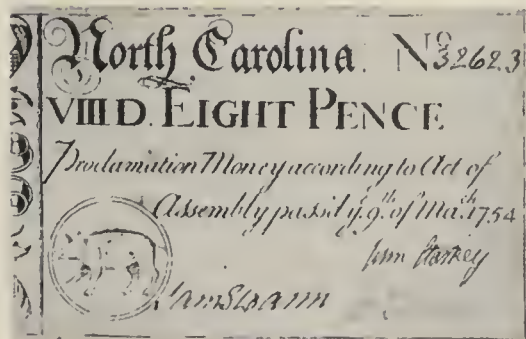 North Carolina. No 32623
VIII D. EIGHT PENCE
Proclamation Money according to Act of
Assembly pass'd ye 9th of Mach 1754